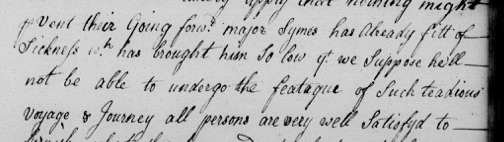 apply that nothing might
pvent their Going forwd. major Symes has Already fitt of
Sickness wch. has brought him So low yt. we Suppose he'll
not be able to undergo the featague of Such teadious
Voyage & Journey all persons are very well Satisfyd to